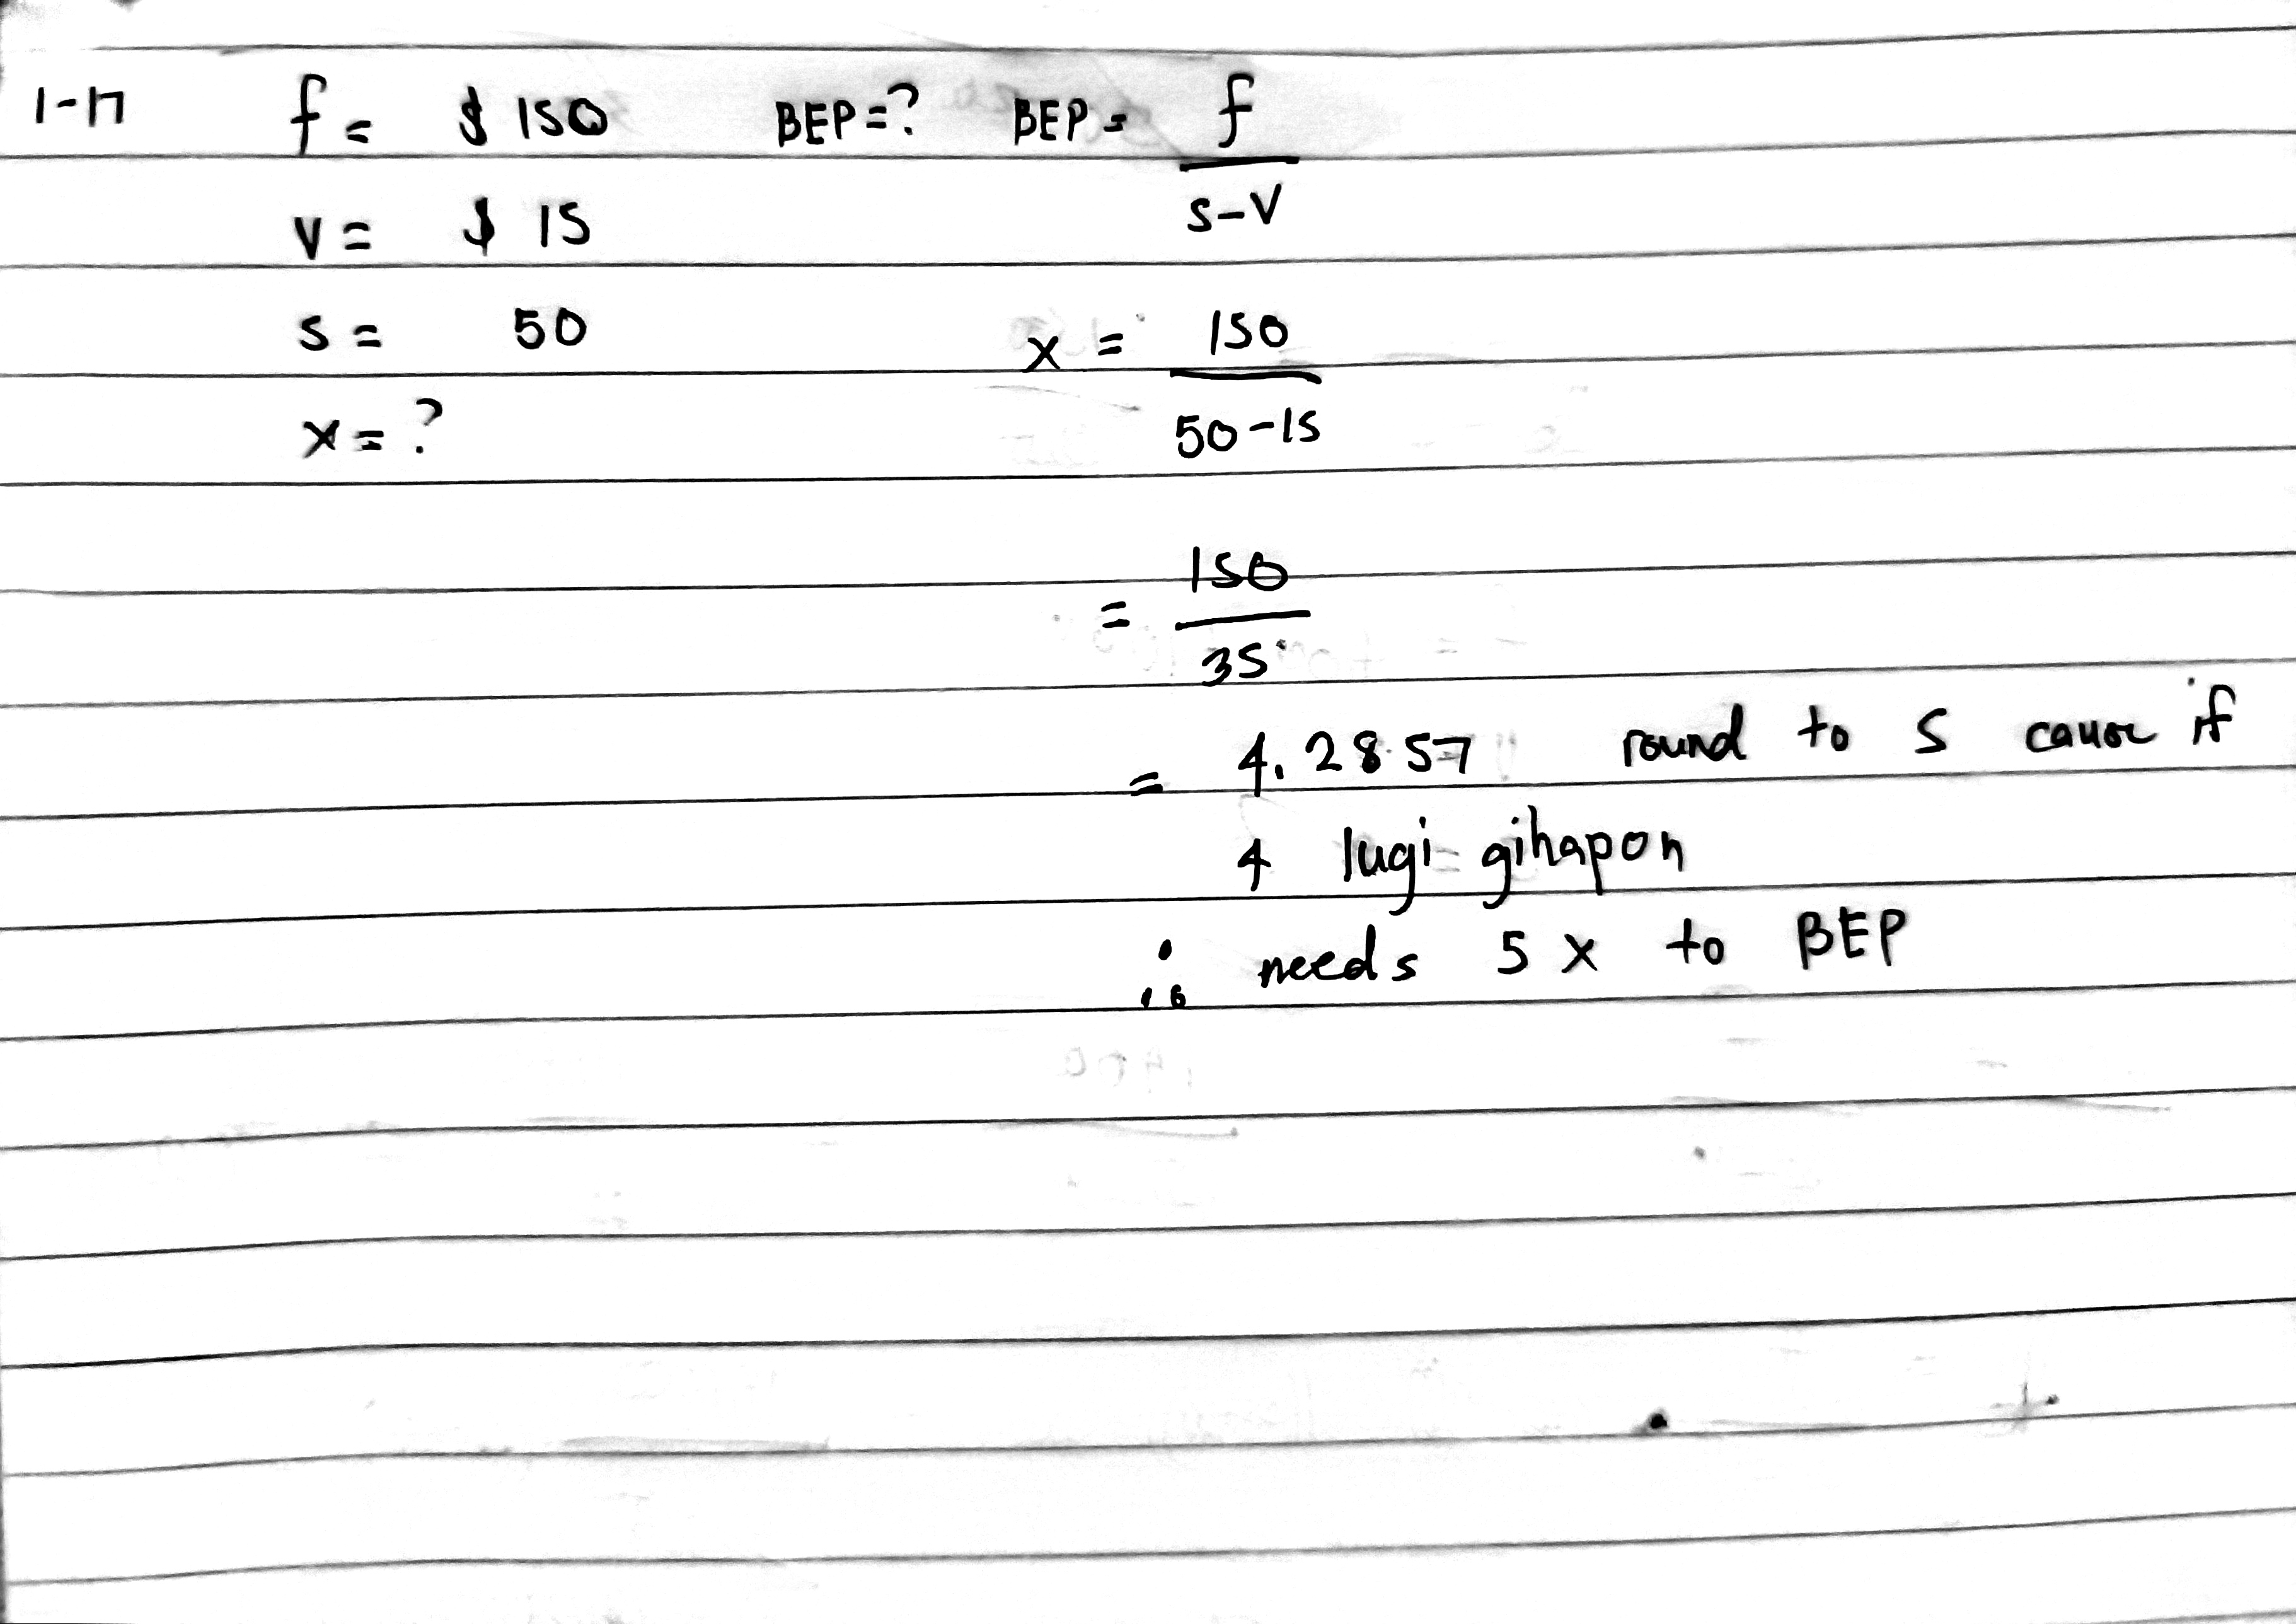 1-17 f = $ 150 BEP=? BEP = f
s-v
v = $ 15
s = 50
x = 150
50-15
x = ?
= 150
35
= 4.2857 round to 5 cause if
4 lugi gihapon
∴ needs 5 x to BEP